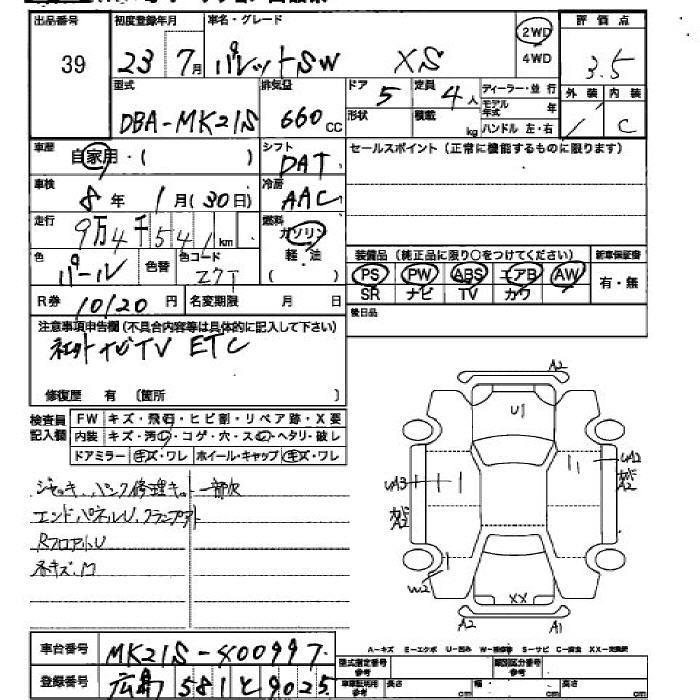 出品番号 初度登録年月 車名・グレード 2WD 4WD 評価点
39 23年 7月 パレットSW XS 3.5
型式 排気量 ドア 5 定員 4人 ディーラー・並行 外装 内装
DBA-MK21S 660cc 形状 積載 kg モデル年式 年 ハンドル 左・右 / C
車歴 自家用・( ) シフト DAT セールスポイント(正常に機能するものに限ります)
車検 8年 1月(30日) 冷房 AAC
走行 9万4千541km 燃料 ガソリン 軽・油 ( )
色 パール 色替 色コード Z7T
装備品(純正品に限り○をつけてください) 新車保証書
PS PW ABS エアB AW 有・無
SR ナビ TV カワ
R券 10120円 名変期限 月 日 後日品
注意事項申告欄(不具合内容等は具体的に記入して下さい)
ナビTV ETC
修復歴 有 〔箇所 〕
検査員記入欄 FW キズ・飛石・ヒビ割・リペア跡・X要
内装 キズ・汚れ・コゲ・穴・スレ・ヘタリ・破レ
ドアミラー キズ・ワレ ホイール・キャップ キズ・ワレ
ジャッキ、パンク修理キット一部欠
エンドパネルU、
RフロアU
各キズ、凹
A2
U1
UA2
A2
UA3
A2
W2
XX
A2 A1
A-キズ E-エクボ U-凹み W-補修跡 S-サビ C-腐食 XX-交換済
車台番号 MK21S-400997
登録番号 広島 581 と 9025
型式指定番号 参考 類別区分番号 参考
車庫証明用 参考 長さ cm 幅 cm 高さ cm